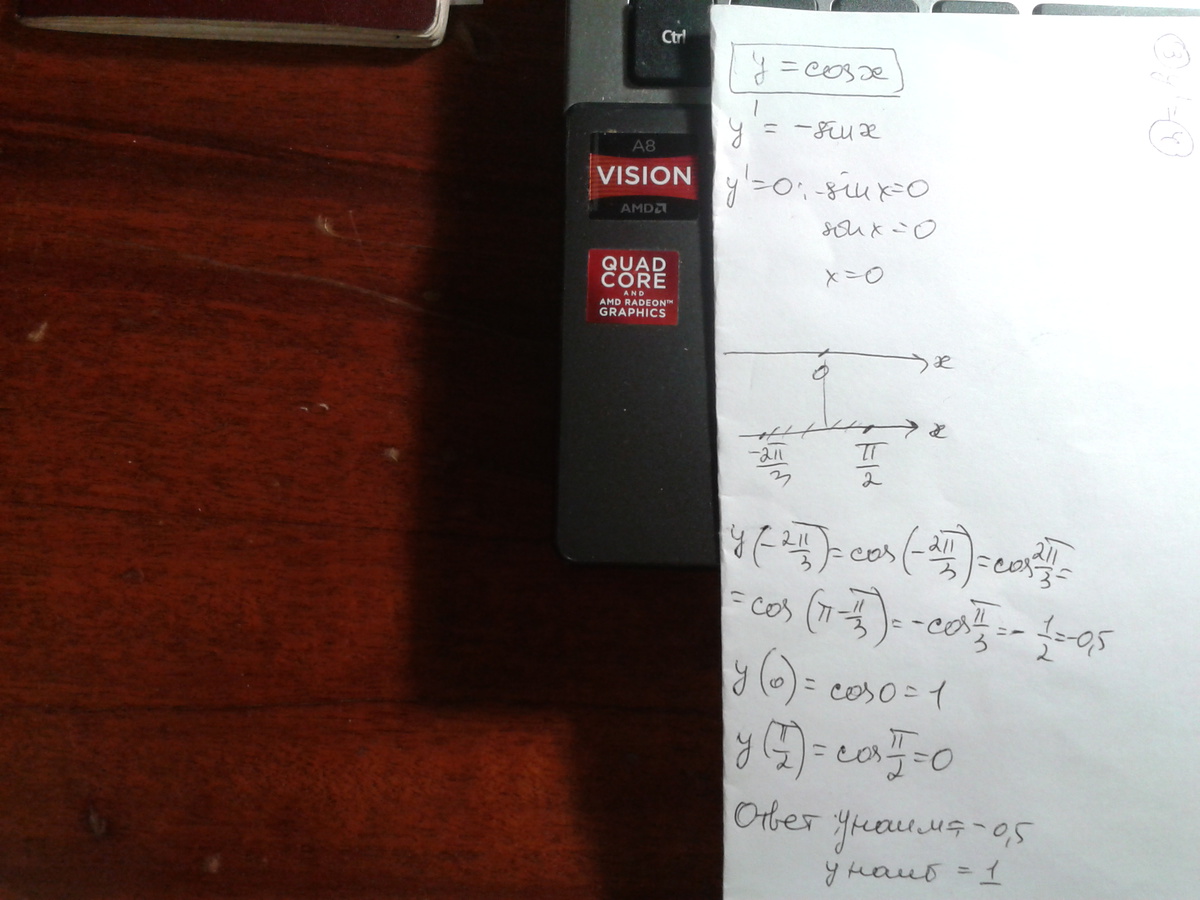 Ctrl
A8
VISION
AMD
QUAD
CORE
AND
AMD RADEON™
GRAPHICS
y = cos x
y' = -sin x
y'=0: -sin x=0
sin x=0
x=0
0 x
x
-2π/3 π/2
y(-2π/3)=cos(-2π/3)=cos 2π/3=
=cos(π-π/3)=-cos π/3=-1/2=-0,5
y(0)=cos0=1
y(π/2)=cos π/2=0
Ответ: yнаим=-0,5
yнаиб=1